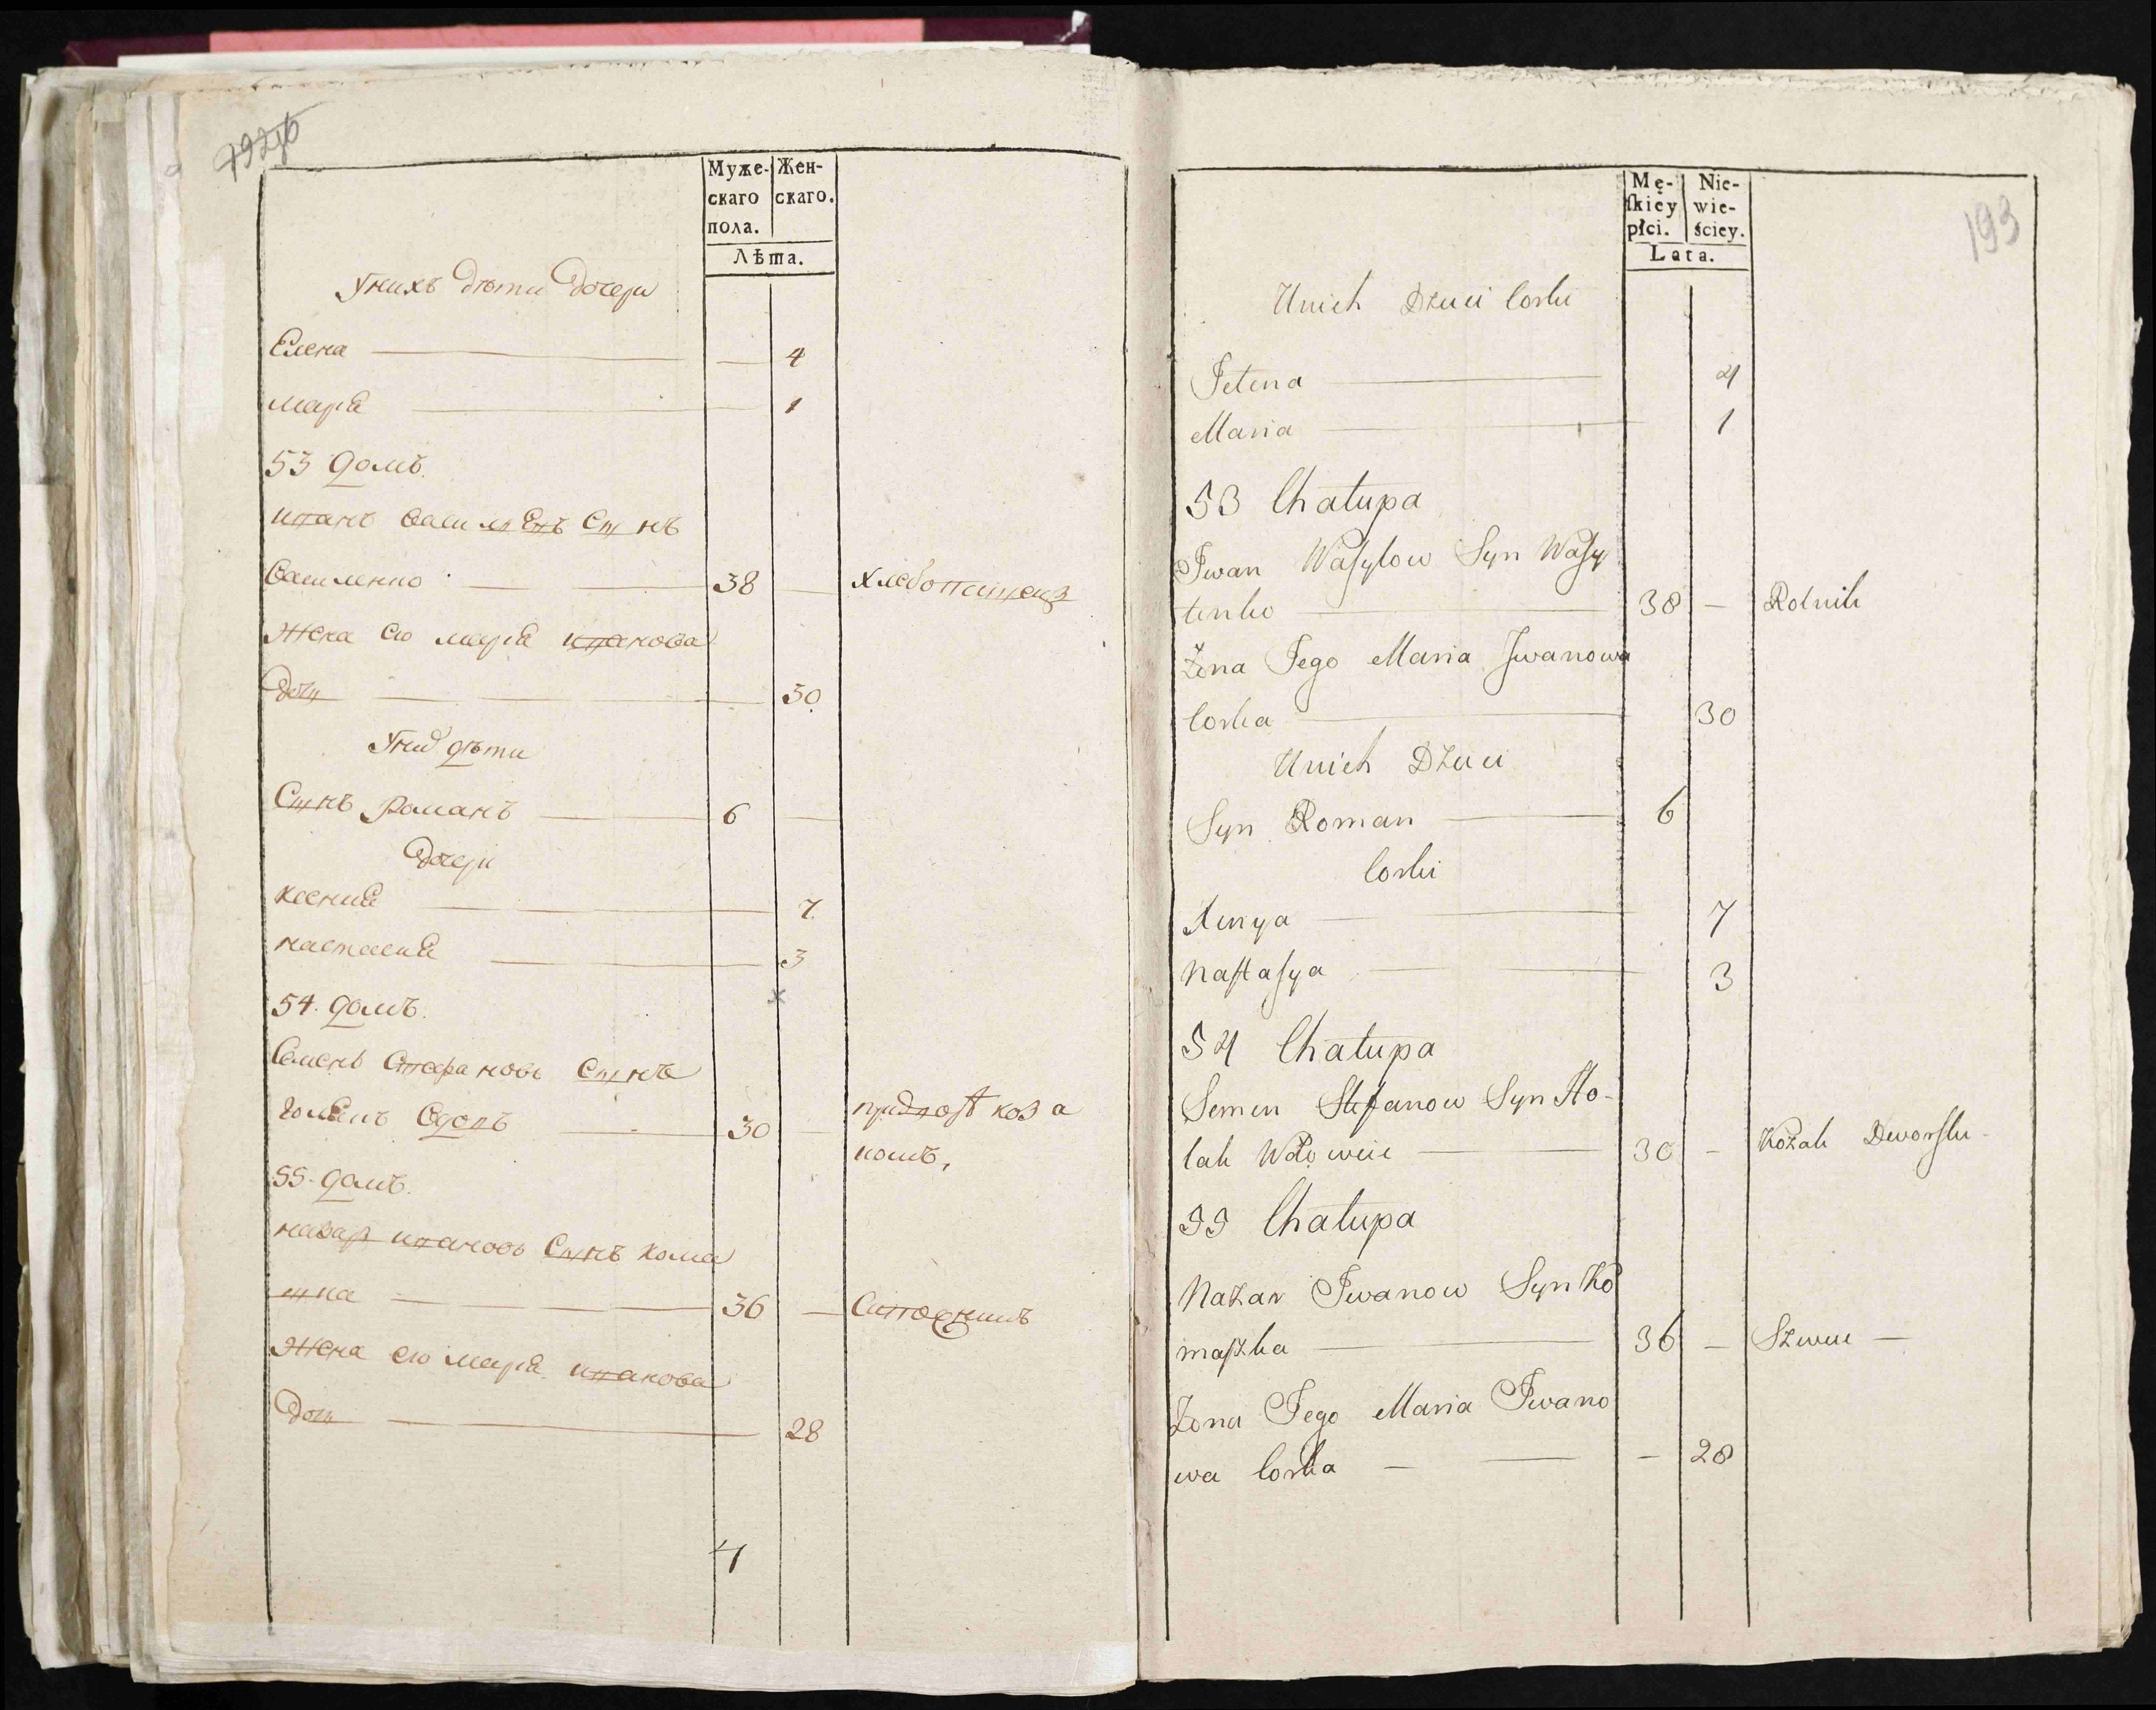 Муже-
скаго
пола.
Жен-
скаго.
Лѣта.
У нихъ дѣти дочери
Елена 4
марія 1
53 домъ.
иванъ василевъ сынъ
василенко 38 хлебопашецъ
жена его марія иванова
дочь 30
У них дѣти
сынъ романъ 6
дочери
ксения 7
настасия 3
54. домъ.
семенъ стефановъ сынъ
голякъ вдовъ 30
козакомъ,
55. домъ.
назар иванова сынъ кома
шка 36
жена его марія иванова
дочь 28
4
193
Mę-
ſkiey
płci.
Nie-
wie-
ściey.
Lata.
Unich Dzieci Corki
Jelena 4
Maria 1
53 Chałupa
Iwan Waſylow Syn Waſy
lenko 38 – Rolnik
Żona Jego Maria Iwanowa
Corka 30
Unich Dzieci
Syn Roman 6
Corki
Xenya 7
Naſtaſya 3
54 Chałupa
Semen Stefanow Syn Ho-
lak Wdowiec 30 – Kozak Dworſki
55 Chałupa
Nazar Iwanow Syn Ko
maſzka 36 – Szewc –
Żona Jego Maria Iwano
wa Corka – 28